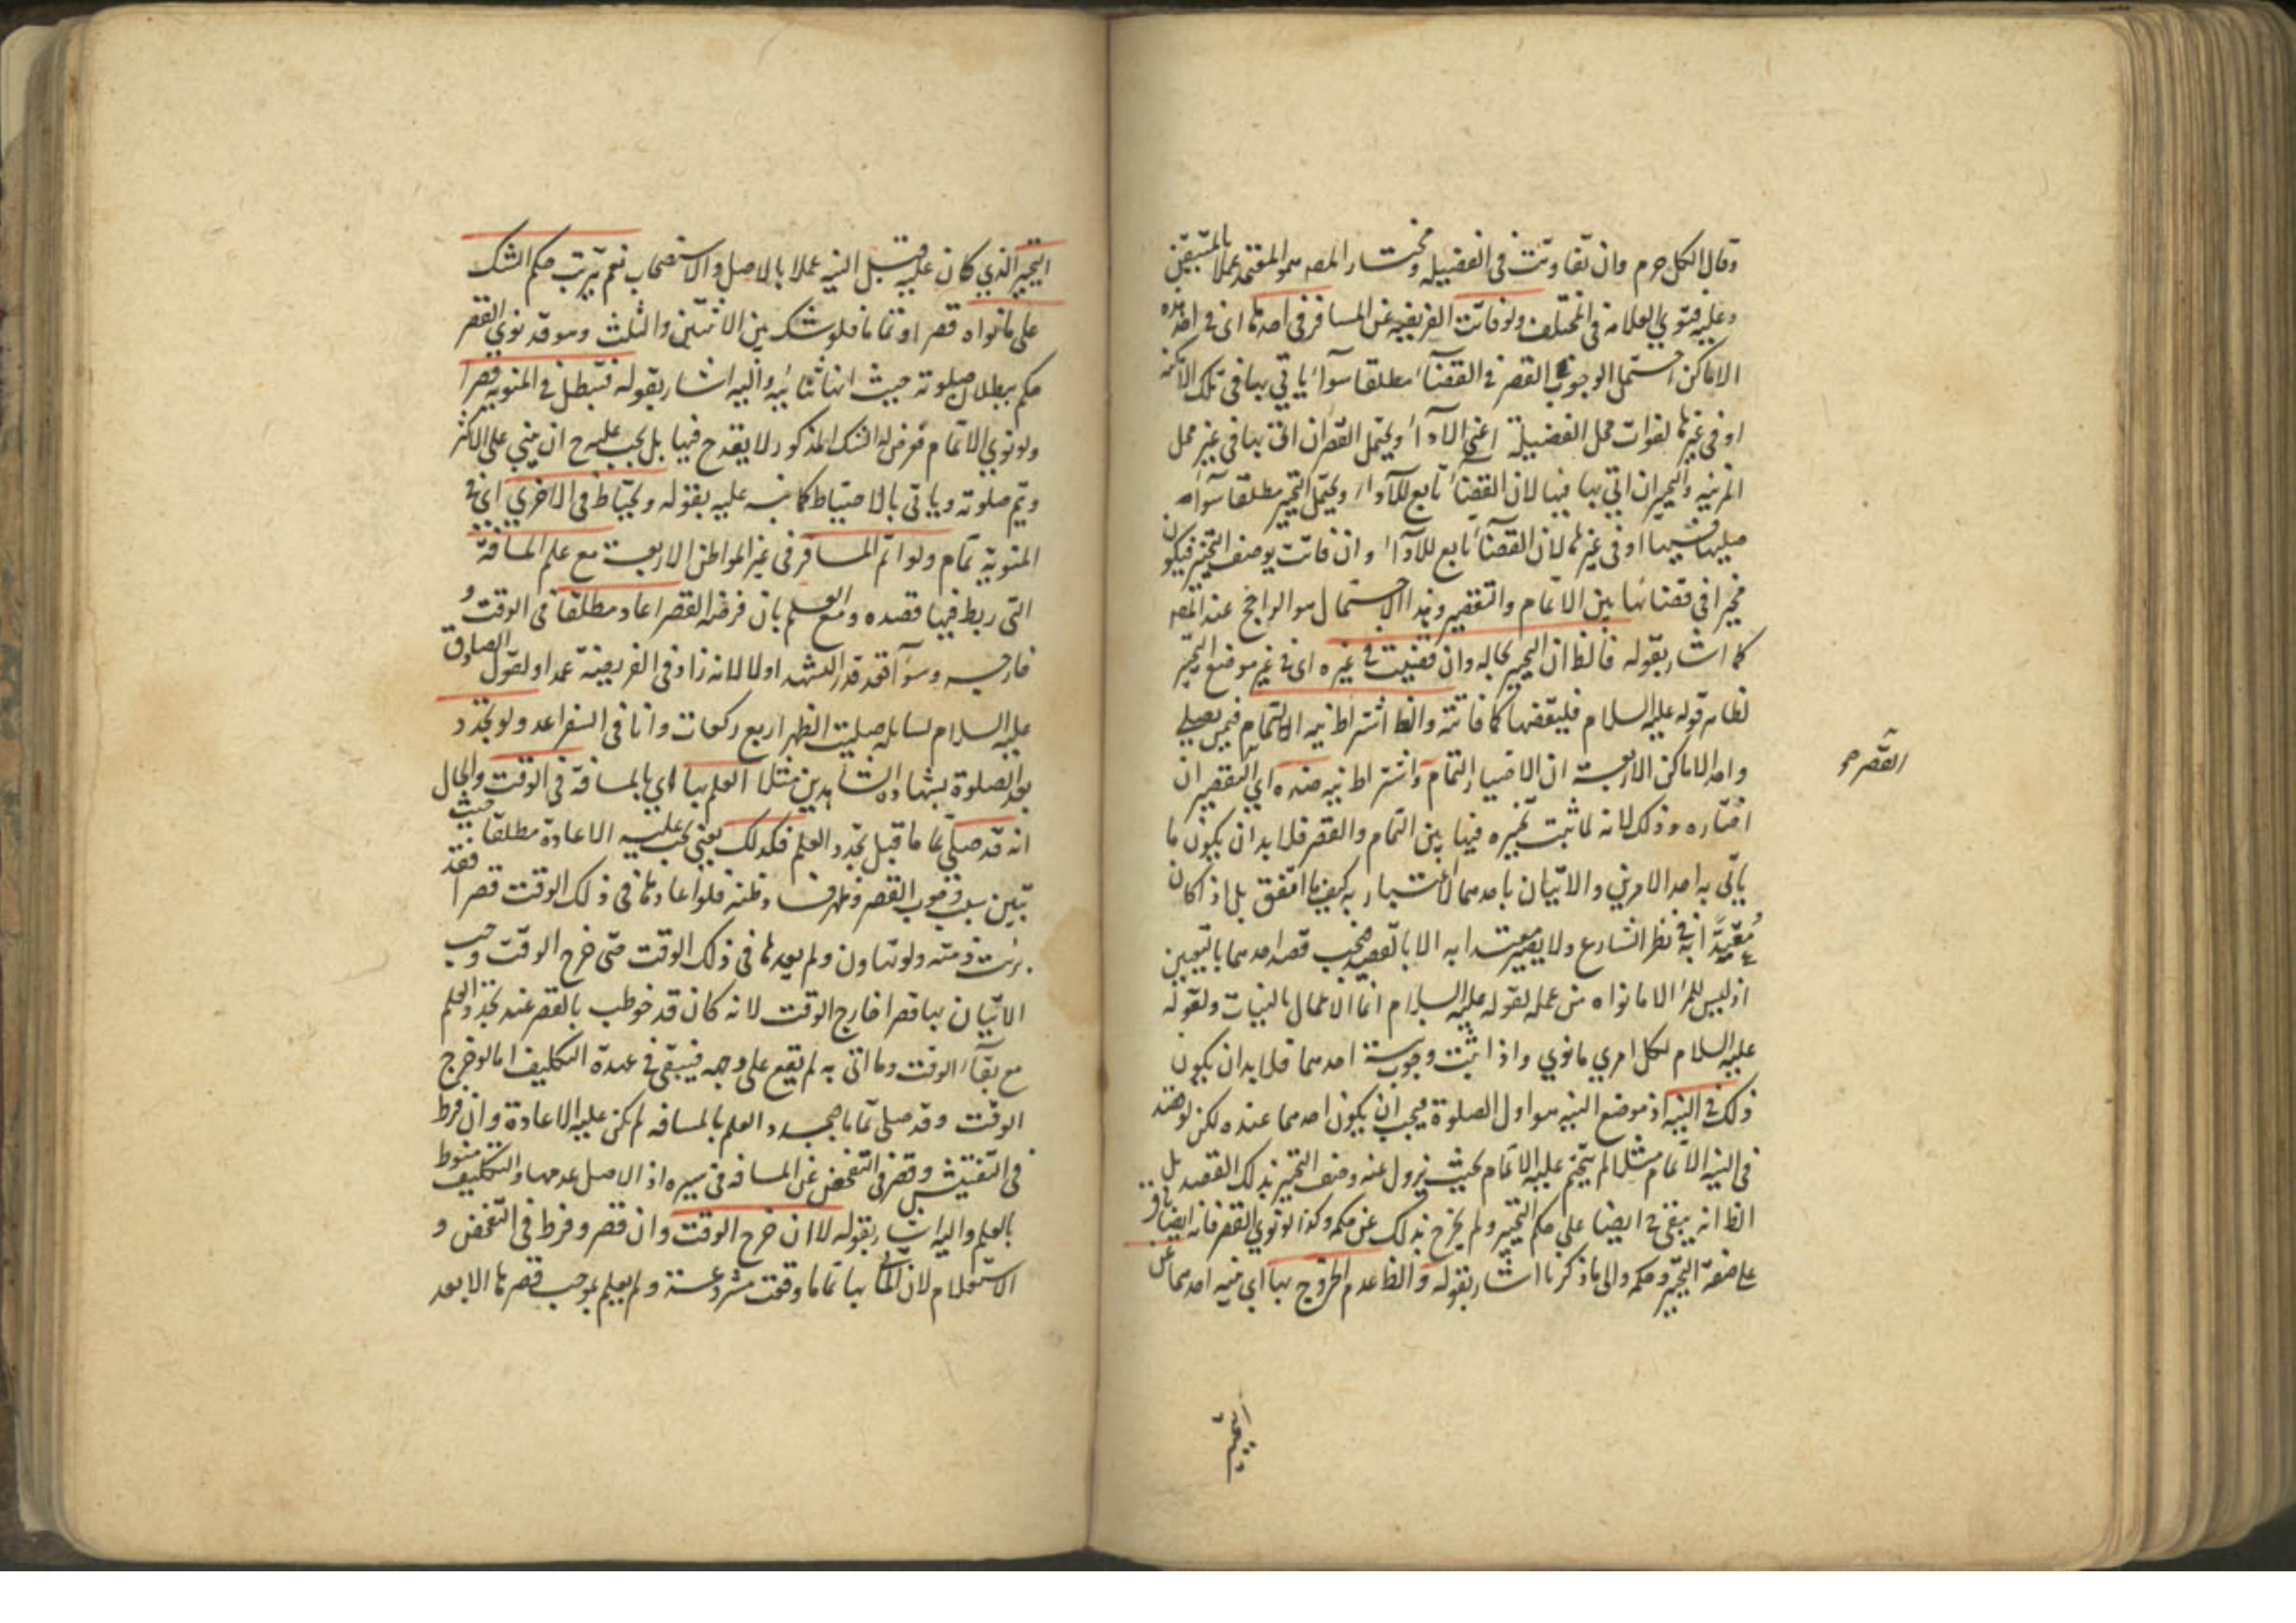 وقال الكل حرم وان تفاوتت في الفضيلة ومختار المصـ هو المعتمد عملا بالمتيقن
وعليه فتوي العلامة في المختلف ولو فاتت الفريضيه عن المسافر في احدها اى في احد هذه
الاماكن احتمل الوجوب القصر في القضآء مطلقا سوآء ياتي بها في تلك الامكنه
او في غيرها لفوات محل الفضيلة اعني الادآء ويحتمل القصر ان اتى بها في غير محل
المزيه والتخيير ان اتي بها فيها لان القضآء تابع للادآء ويحتمل التخيير مطلقا سوآء
صليها فيها او في غيرها لان القضآء تابع للادآء وان فاتت بوصف التخيير فيكون
مخيرا في قضائها بين الاتمام والتقصير وهذا الاحتمال هو الراجح عند المصـ
كما اشار بقوله فالظ ان التخيير بحاله وان قضيت في غيره اى في غير موضع التخيير
لظاهر قوله عليه السلام فليقضها كما فاتته والظ اشتراط نيه الاتمام فيمن يصلي
واحد الاماكن الاربعة ان الاختيار التمام واشتراط نيه ضده اي التقصير ان
اختاره وذلك لانه لما ثبت تخييره فيها بين التمام والقصر فلا بد ان يكون ما
ياتي به احد الامرين والاتيان باحدهما لا اعتبار به كيف ما اتفق بل اذا كان
مُعْتدًّا به في نظر الشارع ولا يصير معتدا به الا بالقصد فيجب قصد احدهما بالتعيين
اذ ليس للمرء الا ما نواه من عمله لقوله عليه السلام انما الاعمال بالنيات ولقوله
عليه السلام لكل امري ما نوي واذا ثبت وجوب نية احدهما فلا بد ان يكون
ذلك في النيه اذ موضع النيه هو اول الصلوة فيجب ان يكون احدهما عنده لكن لو قصد
في النيه الاتمام مثلا لم يتحتم عليه الاتمام بحيث يزول عنه وصف التخيير بذلك القصد بل
الظ انه يبقى ايضا على حكم التخيير ولم يخرج بذلك عن حكمه وكذا لو نوي القصر فانه ايضا باق
على صفة التخيير وحكمه والى ما ذكرنا اشار بقوله والظ عدم الخروج بها اي بنيه احدهما عن
القصر
التخيير
التخيير الذي كان عليه قبل النيه عملا بالاصل والاستصحاب نعم يترتب حكم الشك
على ما نواه قصرا او تماما فلو شك بين الاثنتين والثلث وهو قد نوي القصر
حكم ببطلان صلوته حيث انها ثنائيه واليه اشار بقوله فتبطل في المنويه قصرا
ولو نوي الاتمام فعرض له الشك المذكور لا يقدح فيها بل يجب عليه ح ان يبني على الاكثر
ويتم صلوته وياتى بالاحتياط كما نبه عليه بقوله ويحتاط في الاخري اى في
المنوية تمام ولو اتم المسافر في غير المواطن الاربعة مع علم المسافة
التى ربط فيها قصده ومع العلم بان فرضه القصر اعاد مطلقا في الوقت و
خارجه وسوآء قعد قدر التشهد او لا لانه زاد في الفريضة عمدا ولقول الصادق
عليه السلام لسايله صليت الظهر اربع ركعات وانا في السفر اعد ولو تجدد
بعد الصلوة بشهادة الشاهدين مثلا العلم بها اي بالمسافة في الوقت والحال
انه قد صلي تماما قبل تجدد العلم فكذلك يعني يجب عليه الاعادة مطلقا حيث
تبين سبق وجوب القصر وظهر فساد ظنه فلو اعادها في ذلك الوقت قصرا فقد
برئت ذمته ولو تهاون ولم يعدها في ذلك الوقت حتى خرج الوقت وجب
الاتيان بها قصرا خارج الوقت لانه كان قد خوطب بالقصر عند تجدد العلم
مع بقآء الوقت وما اتى به لم يقع على وجهه فيبقى في عهدة التكليف اما لو خرج
الوقت وقد صلى تماما تجدد العلم بالمسافه لم يكن عليه الاعادة وان فرط
في التفتيش وقصر في التفحص عن المسافه في سيره اذ الاصل عدمها والتكليف منوط
بالعلم واليه اشار بقوله لا ان خرج الوقت وان قصر وفرط في التفحص و
الاستعلام لان بها تماما وقعت مشروعة ولم يعلم بموجب قصرها الا بعد